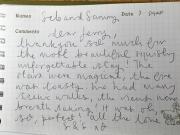 Names Seb and Sammy Date
Comments
Dear Jenny
Thankyou so much for
the most beautiful
unforgettable stay! The
stars were magical, the fire
was toasty. We had many
walks, the views were
breath taking! It was
perfect! all the love
S & S xo